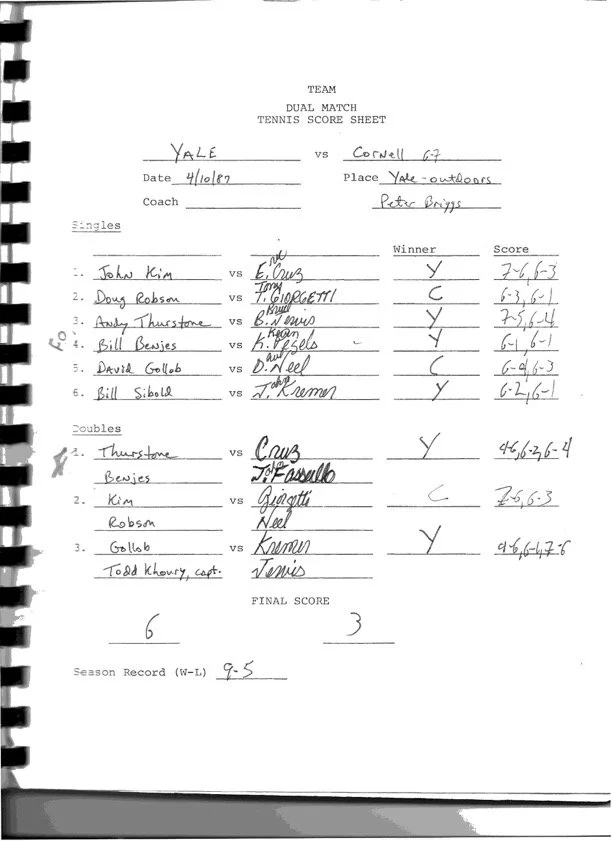 TEAM
DUAL MATCH
TENNIS SCORE SHEET
YALE vs Cornell 6-7
Date 4/10/87 Place Yale - outdoors
Coach Peter Briggs
Singles
Winner Score
1. John Kim vs E. Cruz Y 7-6, 6-3
2. Doug Robson vs Tony T. GIORGETTI C 6-3, 6-1
3. Andy Thurstone vs B. Jewis Y 7-5, 6-4
4. Bill Benjes vs Kevin K. Pegels Y 6-1, 6-1
5. David Gollob vs D. Neel C 6-4, 6-3
6. Bill Sibold vs John Kremer Y 6-2, 6-1
Doubles
1. Thurstone vs Cruz Y 4-6, 6-2, 6-4
Benjes John Fassullo
2. Kim vs Giorgetti C 7-6, 6-3
Robson Neel
3. Gollob vs Kremer Y 4-6, 6-1, 7-6
Todd Khoury, capt. Jewis
FINAL SCORE
6 3
Season Record (W-L) 9-5